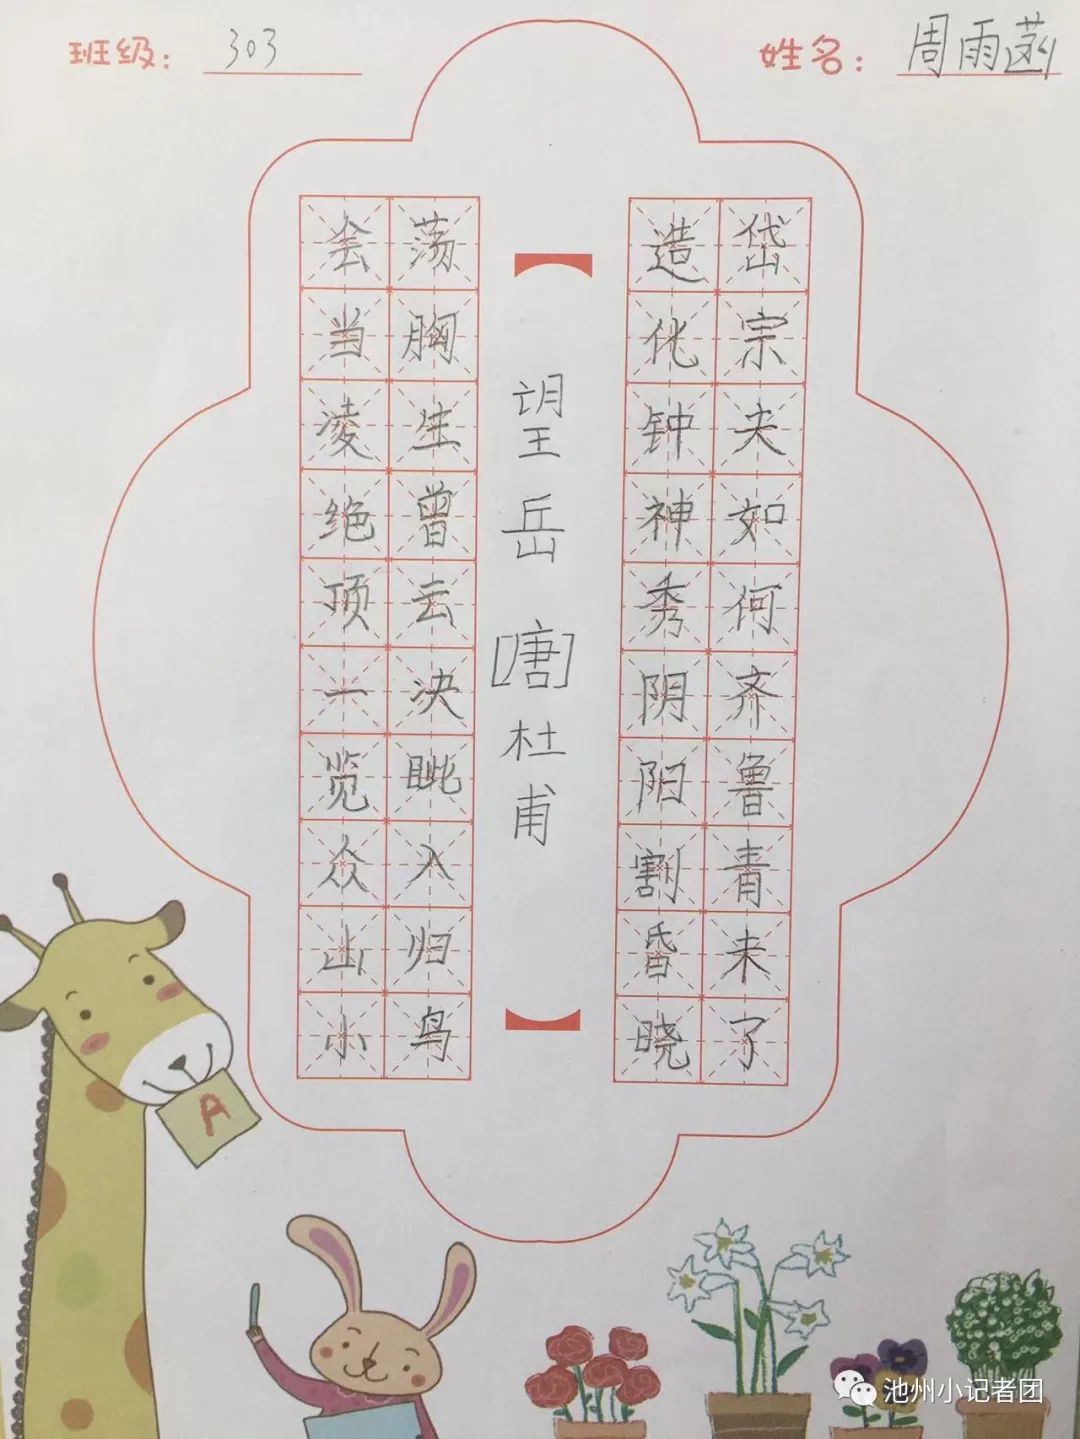 班级：303
姓名：周雨菡
岱宗夫如何齐鲁青来了
造化钟神秀阴阳割昏晓
望岳[唐]杜甫
荡胸生曾云决眦入归鸟
会当凌绝顶一览众山小
A
池州小记者团